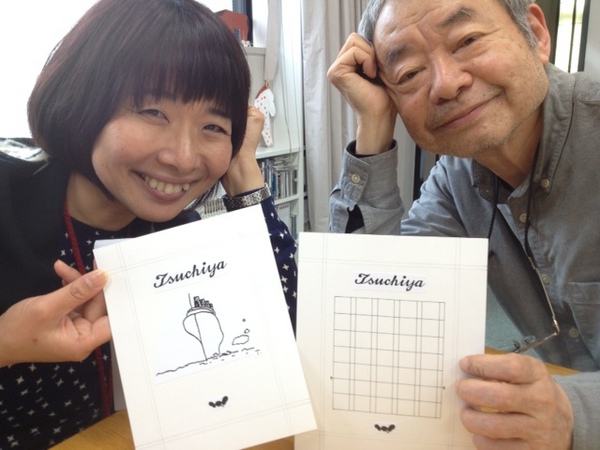 Tsuchiya
Tsuchiya